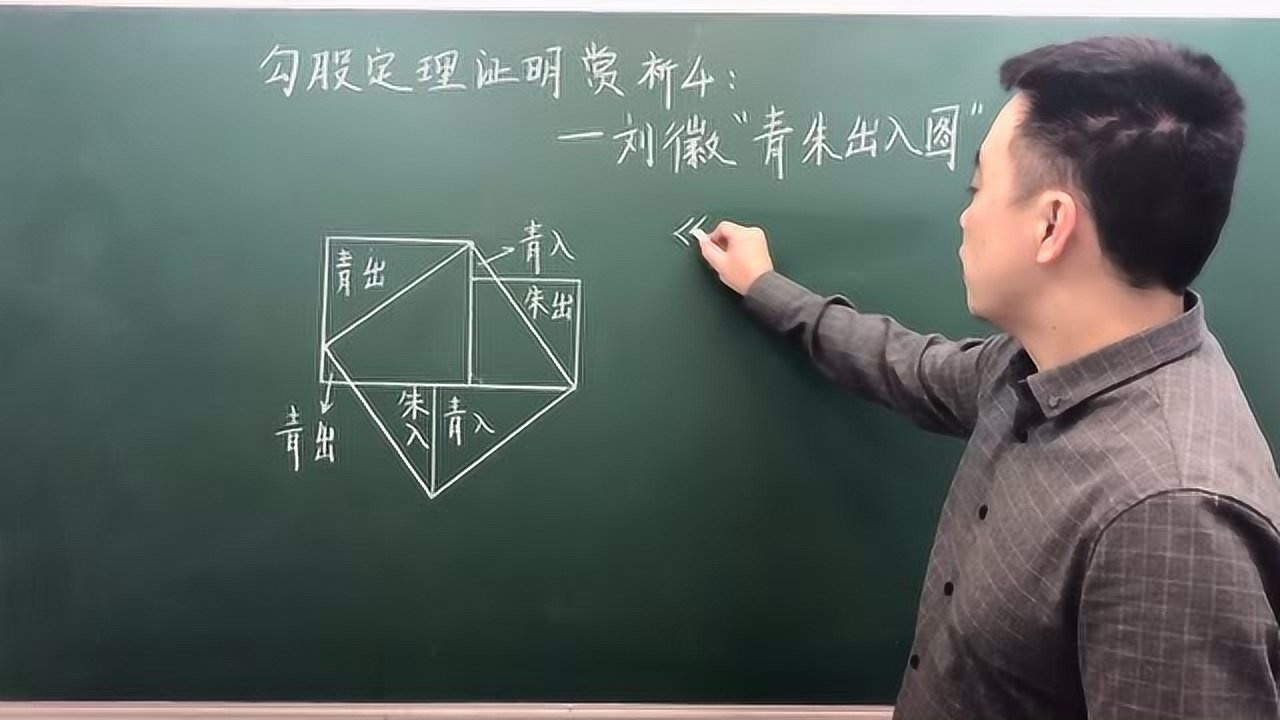 勾股定理证明赏析4:
—刘徽“青朱出入图”
《
青出
青入
朱出
青出
朱入
青入